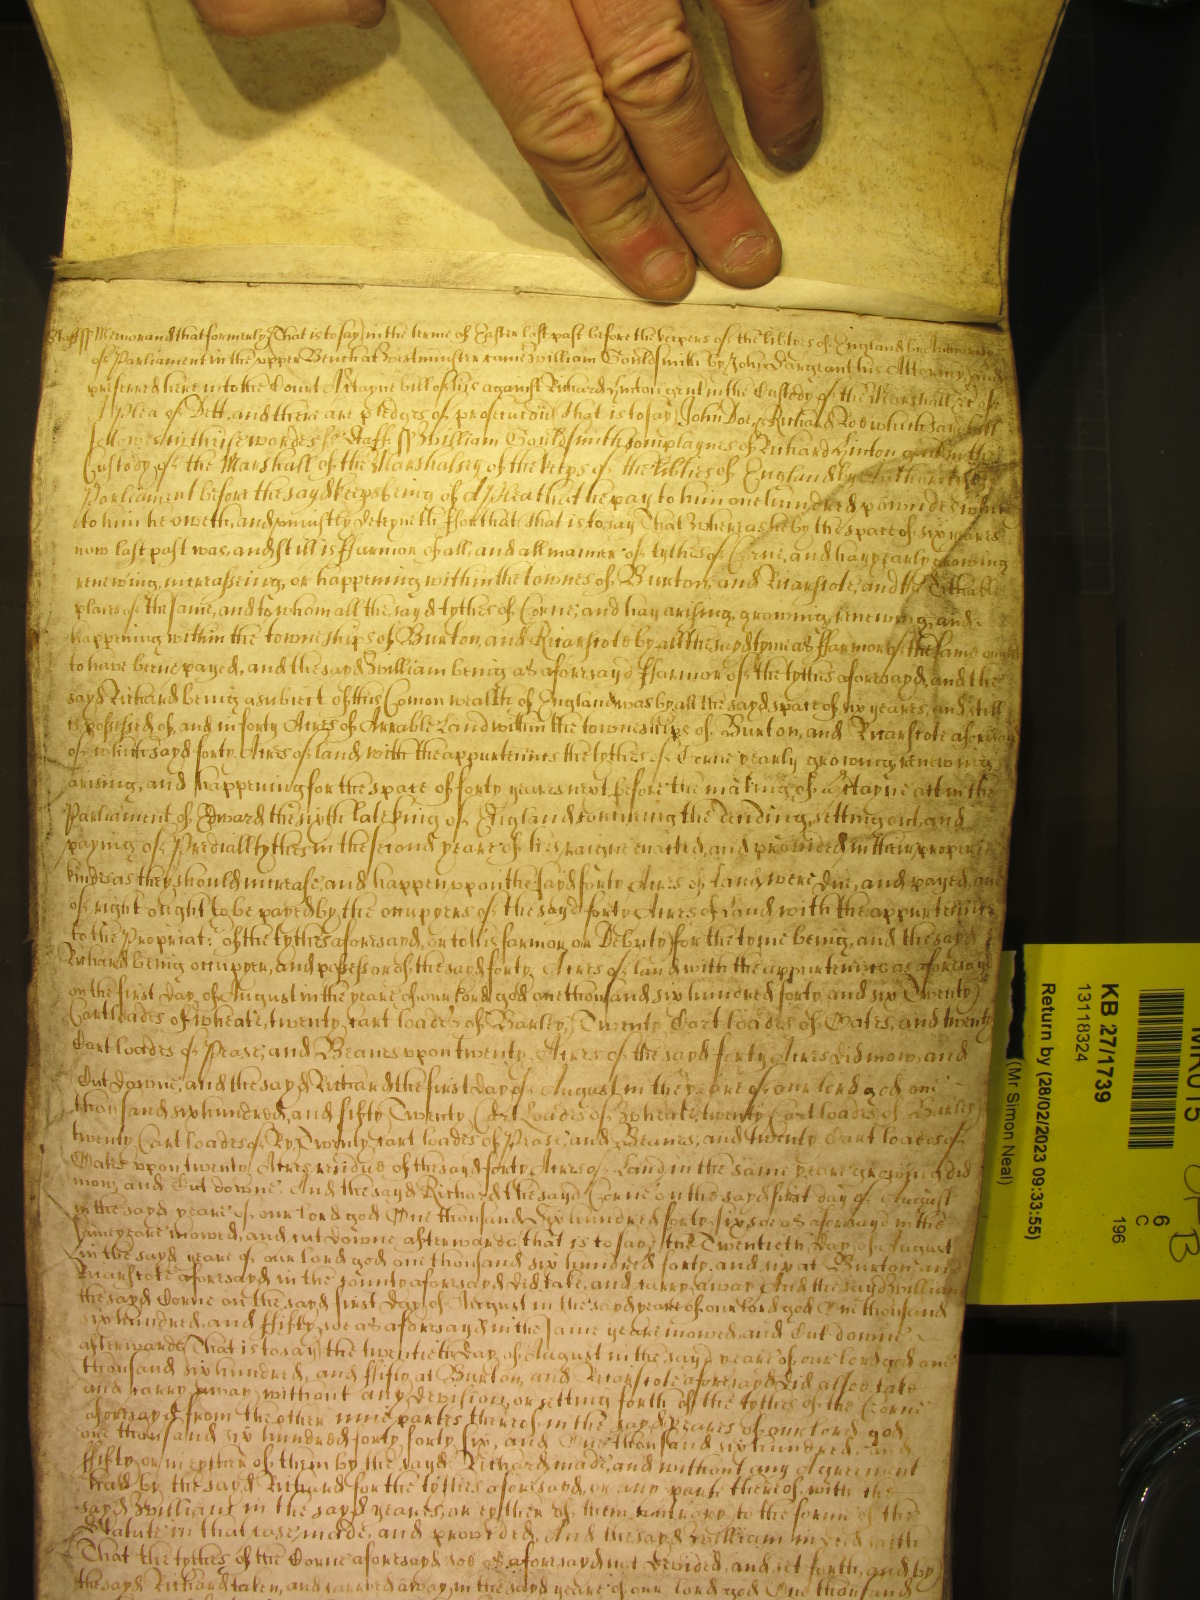 Staff ss Memorand that formerly (That is to say) in the terme of Easter last past before the keepers of the libties of England by Authority
of Parliament in the upper Bench at Westminster came William Gouldsmith by John Sargeant his Attorney, and
preferred here into the Court a Ctayne bill of his against Richard Hinton gent in the Custody of the Marshall &c of
a plea of Dett, and there are pledges of prosecucion (that is to say) John Doe, & Richard Roe which said bill
followes in these wordes ss Staff ss William Gouldsmith complaynes of Richard Hinton gent in the
Custody of the Marshall of the Marshalsey of the keeps of the libties of England by Authoritie of
Parliament before the sayd keeps being of a plea that he pay to him one hundred powndes which
to him he oweth, and uniustly deteyneth ffor that that is to say That whereas he by the space of six yeares
now last past was, and still is ffarmor of all, and all manner of tythes of Corne, and hay yearly growing
renewing, increasseing, or happening within the townes of Burton, and Ruarstole, and the Tithable
places of the same, and to whom all the sayd tythes of Corne, and hay arising, growing, renewing, and
happening within the towneships of Burton, and Ruarstole by all the sayd tyme as ffarmor of the same ought
to have beene payed, and the sayd William being as aforesayd ffarmor of the tythes aforesayd, and the
sayd Richard being a subiect of this Comon wealth of England was by all the sayd space of six yeares, and still
is possessed of, and in forty Acres of Arrable Land within the towneships of Burton, and Ruarstole aforesayd
of which sayd forty Acres of land with the appurtennces the tythes of Corne yearly growing, renewing
arising, and happening for the space of forty yeares next before the making of a Ctayne act in the
Parliament of Edward the sixth late king of England concerning the deviding, setting out, and
paying of Prediall tythes in the second yeare of his raigne enacted, and provided in their proper
kindes as they should increase, and happen uppon the sayd forty Acres of land were due, and payed, and
of right ought to be payed by the occupyers of the sayd forty Acres of Land with the appurtennces
to the Propriat: of the tythes aforesayd, or to his farmor or Deputy for the tyme being, and the sayd
Richard being occupyer, and possessor of the sayd forty Acres of land with the appurtennces as aforesayd
on the first day of August in the yeare of our lord god one thousand six hundred forty and six Twenty
Cart loades of wheate, twenty cart loades of Barley, Twenty Cart loades of Oates, and twenty
Cart loades of Pease, and Beanes uppon twenty Acres of the sayd forty Acres did mow, and
Cut downe, and the sayd Richard the first day of August in the yeare of our lord god one
thousand six hundred, and fifty Twenty Cart Loades of wheate, twenty Cart loades of Barley
twenty Cart loades of Ry, Twenty cart loades of Pease, and Beanes, and twenty Cart loades of
Oates uppon twenty Acres residue of the sayd forty Acres of Land in the same yeare growing did
mow, and Cut downe And the sayd Richard the sayd Corne on the sayd first day of August
in the sayd yeare of our lord god One thousand Six hundred forty six soe as aforesayd in the
same yeare mowed, and cut downe afterwards (that is to say) the Twentieth day of August
in the sayd yeare of our lord god one thousand six hundred forty and six at Burton, and
Ruarstole aforesayd in the county aforesayd did take, and carry away And the sayd William
the sayd Corne on the sayd first day of August in the sayd yeare of our lord god One thousand
six hundred, and ffifty, soe as aforesayd in the same yeare mowed, and Cut downe
afterwards (That is to say) the twentieth day of August in the sayd yeare of our lord god one
thousand six hundred, and ffifty at Burton, and Ruarstole aforesayd did alsoe take
and carry away without any devision, or setting forth of the tythes of the Corne
aforesayd from the other nine partes thereof in the sayd yeares of our lord god
one thousand six hundred forty forty six, and One thousand six hundred, and
ffifty or in eyther of them by the sayd Richard made, and without any Agreement
had by the sayd Richard for the tythes aforesayd, or any parte thereof, with the
sayd William in the sayd yeares, or eyther of them contrary to the forme of the
Statute in that case made, and provided, And the sayd William in deed saith
That the tythes of the Corne aforesayd soe as aforesayd not devided, and set forth, and by
the sayd Richard taken, and carryed away, in the sayd yeare of our lord god One thousand
KB 27/1739
13118324
Return by (28/02/2023 09:33:55)
(Mr Simon Neal)
196
C
6